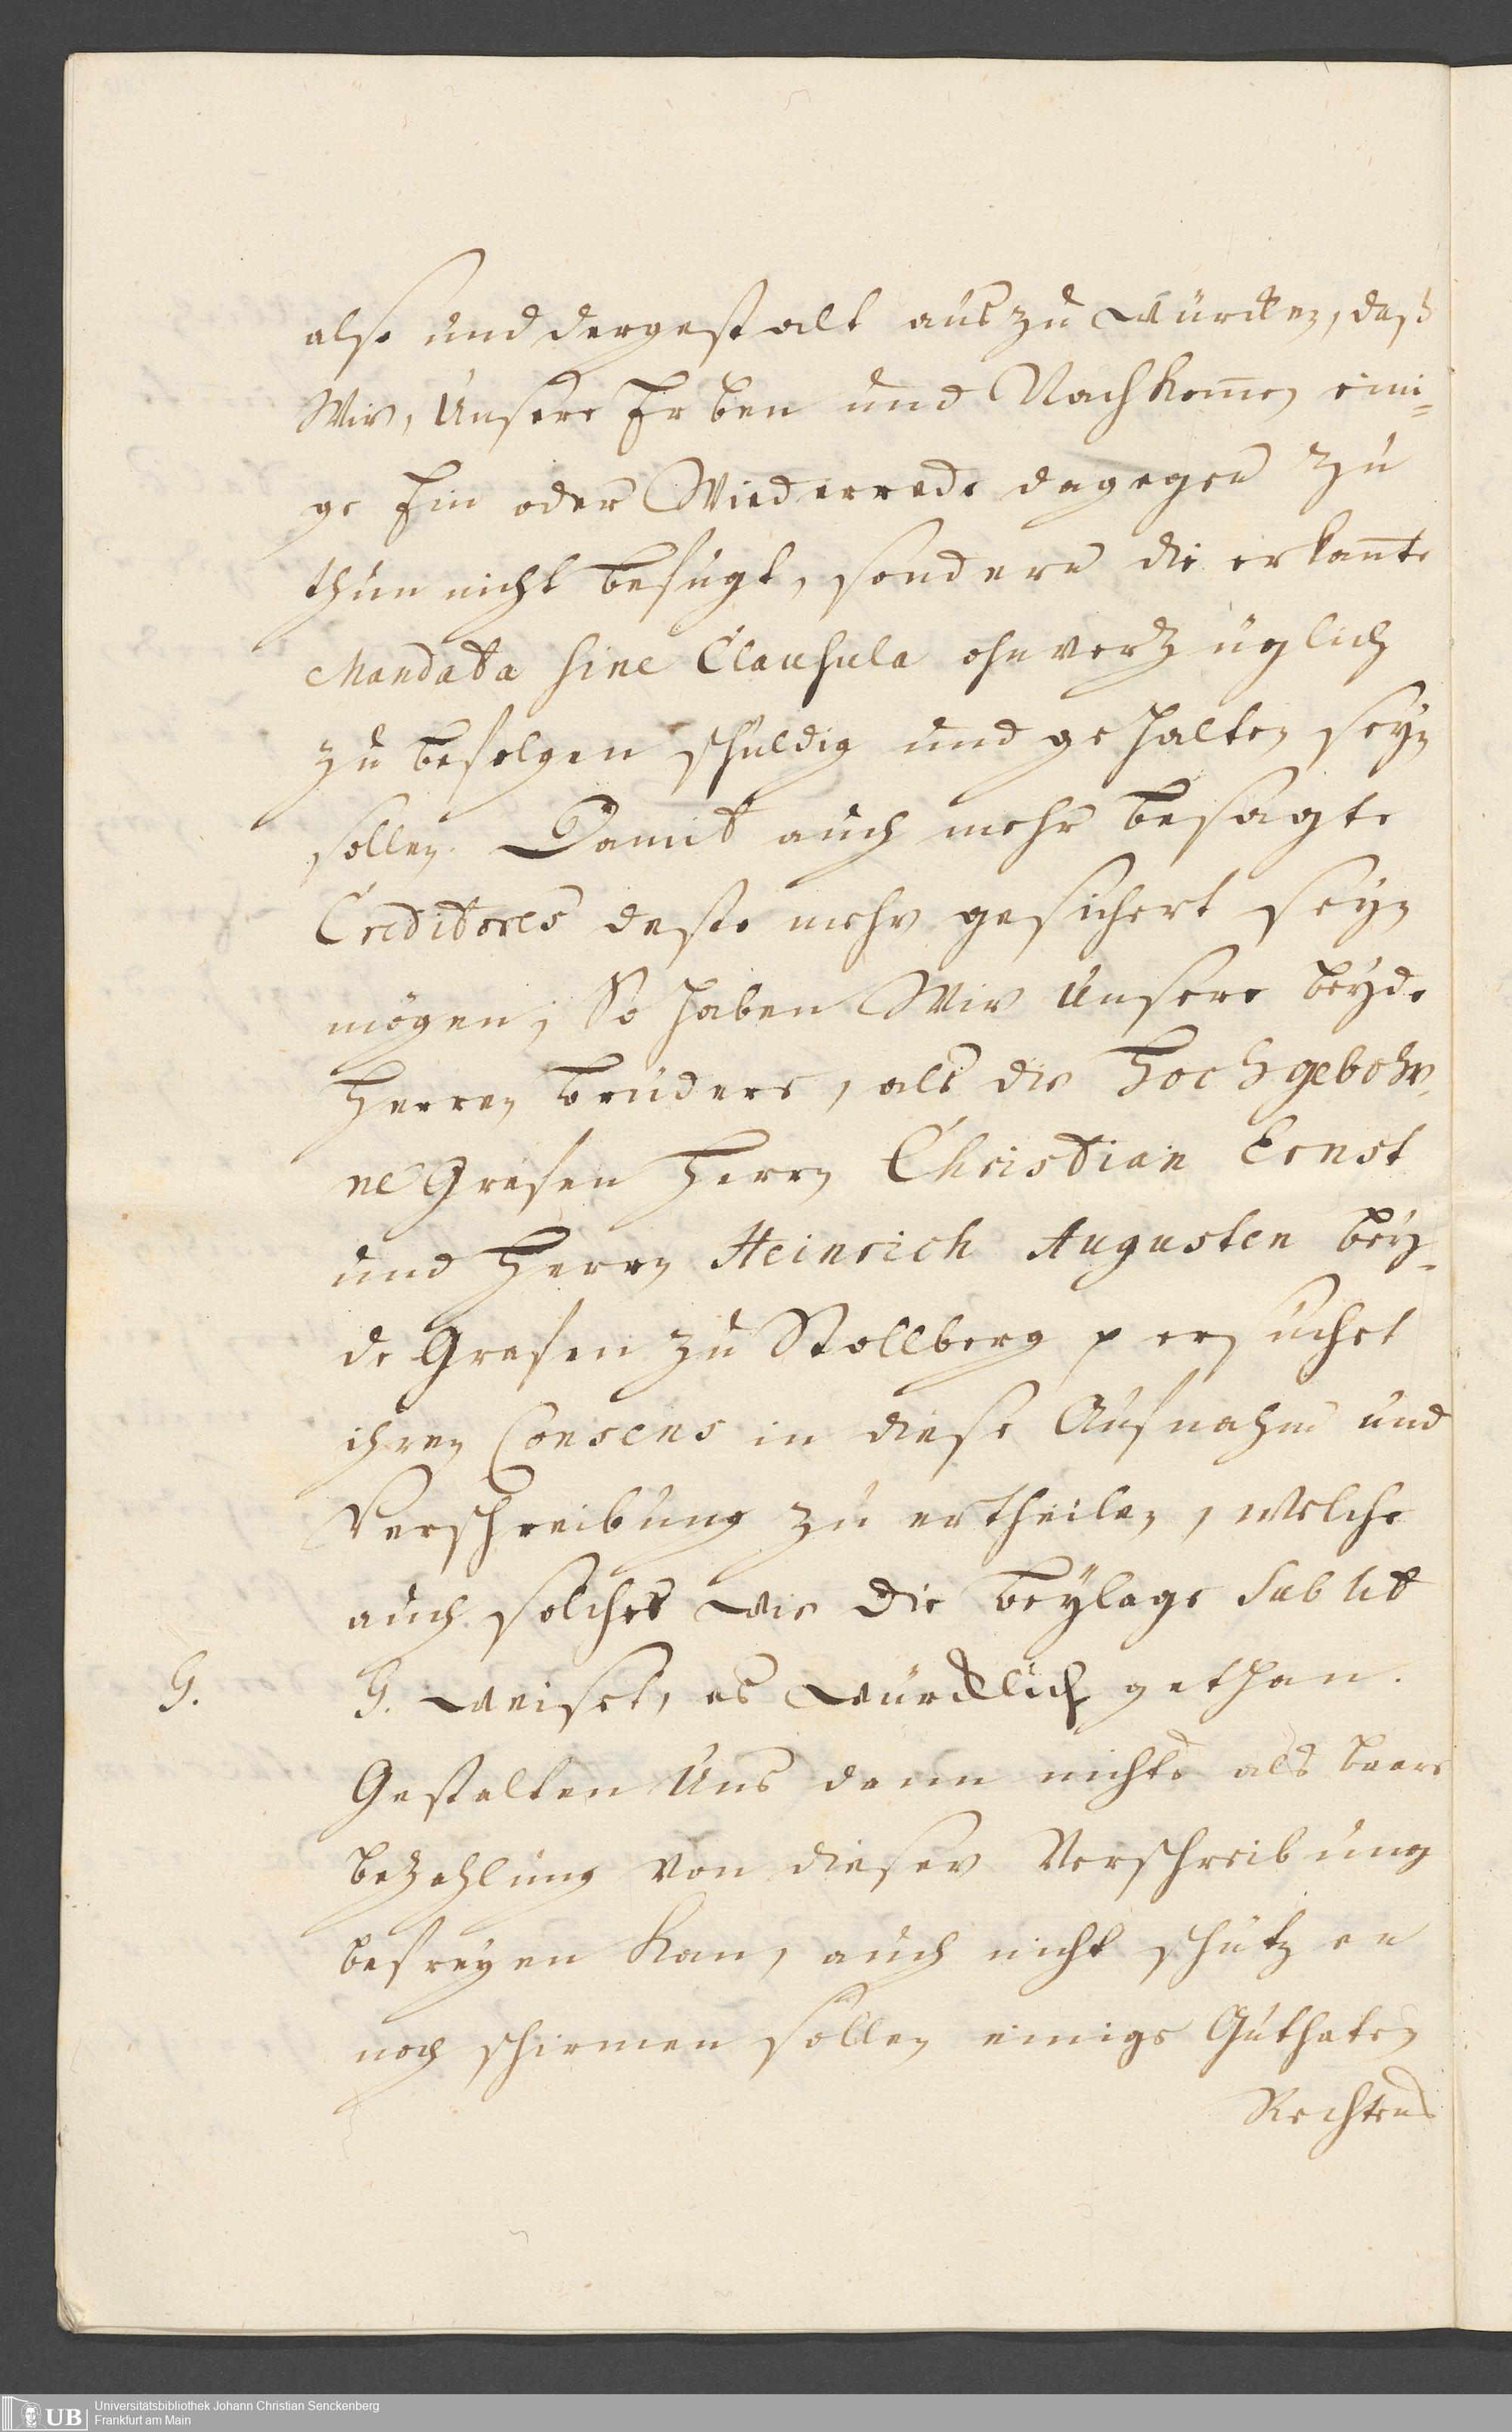 also und dergestalt auszuwürcken, daß
Wir, Unsere Erben und Nachkom̄en eini=
ge Ein oder Wiederrede dagegen zu
thun nicht befugt, sondern die erkan̄te
Mandata sine Clausula ohnverzüglich
zu befolgen schuldig und gehalten seyn
sollen. Damit auch mehr besagte
Creditores desto mehr gesichert seyn
mögen, So haben Wir Unsere beyde
Herren Brüdere, als die Hochgebohr=
ne Grafen Herrn Christian Ernst
und Herrn Heinrich Augusten bey=
de Grafen zu Stollberg p ersuchet
ihren Consens in diese Aufnahm und
Verschreibung zu ertheilen, welche
auch solches wie die Beylage sub lit
G.
G. weiset, es würcklich gethan.
Gestalten Uns dann nichts als baare
bezahlung von dieser Verschreibung
befreyen kan, auch nicht schützen
noch schirmen sollen einige Guthaten
Rechtens
Universitätsbibliothek Johann Christian Senckenberg
UB
Frankfurt am Main